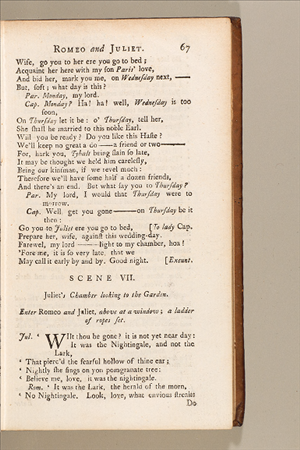 ROMEO and JULIET. 67
Wife, go you to her ere you go to bed;
Acquaint her here with my ſon Paris' love,
And bid her, mark you me, on Wedneſday next, ——
But, ſoft; what day is this?
Par. Monday, my lord.
Cap. Monday? Ha! ha! well, Wedneſday is too
ſoon,
On Thurſday let it be: o' Thurſday, tell her,
She ſhall be married to this noble Earl.
Will you be ready? Do you like this Haſte?
We'll keep no great a do —— a friend or two ——
For, hark you, Tybalt being ſlain ſo late,
It may be thought we held him careleſly,
Being our kinſman, if we revel much:
Therefore we'll have ſome half a dozen friends,
And there's an end. But what ſay you to Thurſday?
Par. My lord, I would that Thurſday were to
morrow.
Cap. Well, get you gone —— on Thurſday be it
then:
Go you to Juliet ere you go to bed, [To lady Cap.
Prepare her, wife, againſt this wedding-day.
Farewel, my lord —— light to my chamber, hoa!
'Fore me, it is ſo very late, that we
May call it early by and by. Good night. [Exeunt.
SCENE VII.
Juliet's Chamber looking to the Garden.
Enter Romeo and Juliet, above at a window; a ladder
of ropes ſet.
Jul. ‘ WIlt thou be gone? it is not yet near day:
It was the Nightingale, and not the
Lark,
‘ That pierc'd the fearful hollow of thine ear;
‘ Nightly ſhe ſings on yon pomgranate tree:
‘ Believe me, love, it was the nightingale.
Rom. ‘ It was the Lark, the herald of the morn,
‘ No Nightingale. Look, love, what envious ſtreaks
Do